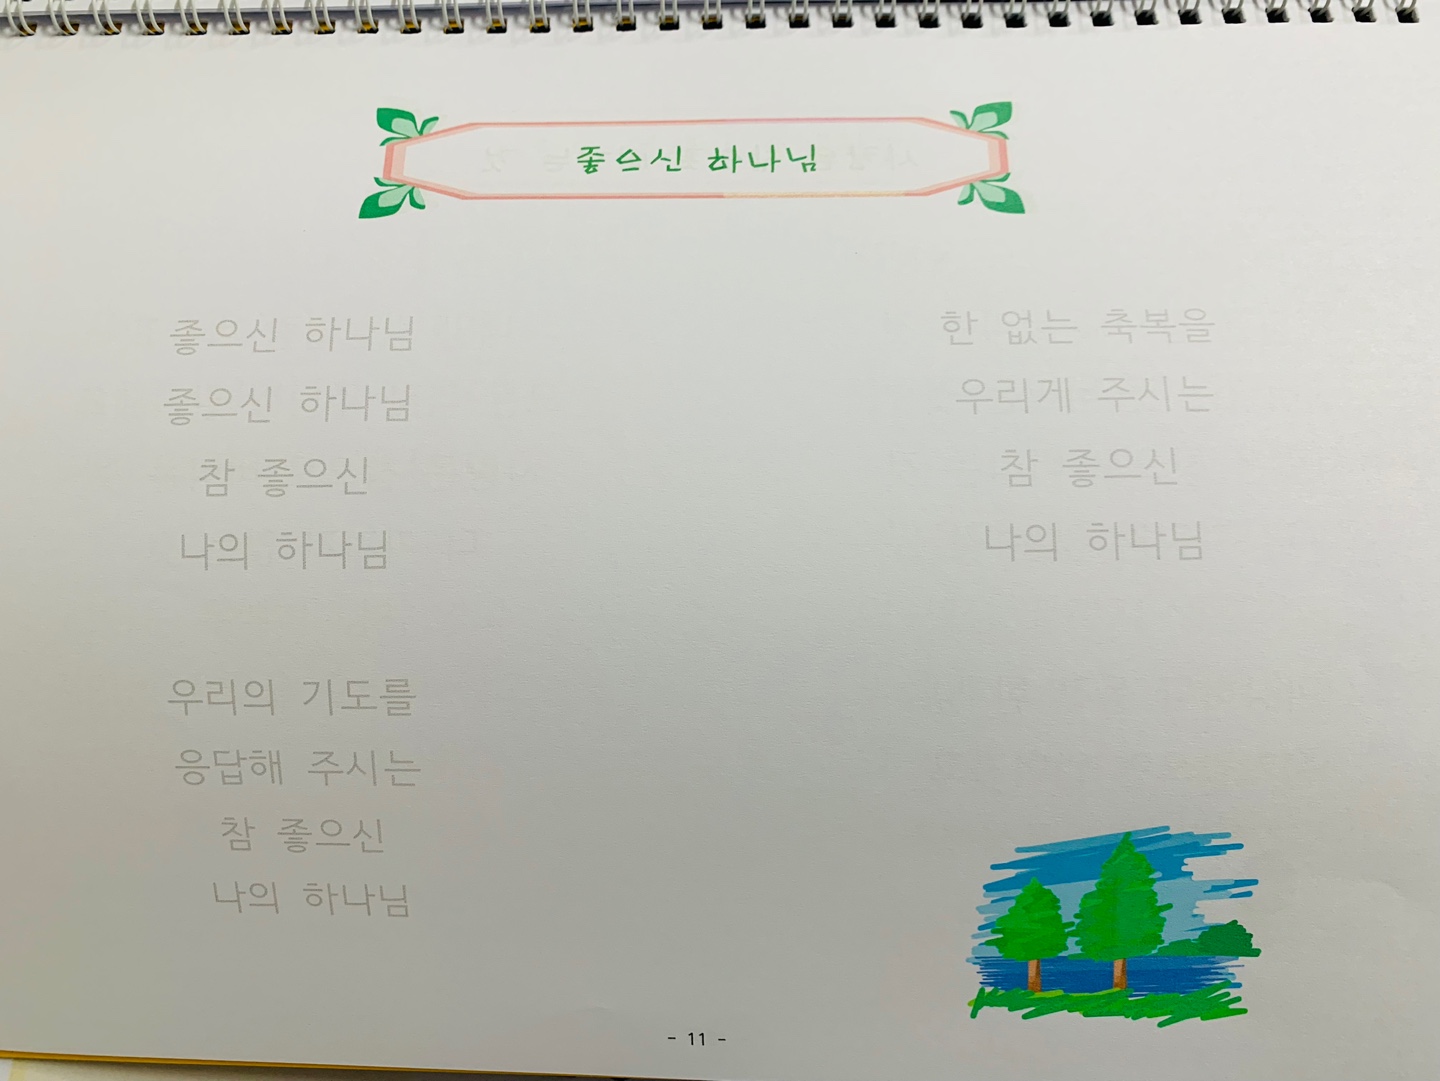 좋으신 하나님
좋으신 하나님
좋으신 하나님
참 좋으신
나의 하나님
우리의 기도를
응답해 주시는
참 좋으신
나의 하나님
한 없는 축복을
우리게 주시는
참 좋으신
나의 하나님
- 11 -